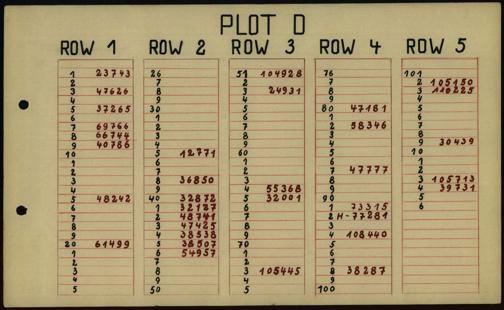 PLOT D
ROW 1
1 23743
2
3 47626
4
5 37265
6
7 69766
8 66744
9 40786
10
1
2
3
4
5 48242
6
7
8
9
20 61499
1
2
3
4
5
ROW 2
26
7
8
9
30
1
2
3
4
5 12771
6
7
8 36850
9
40 32872
1 32127
2 48741
3 47425
4 38538
5 38507
6 54957
7
8
9
50
ROW 3
51 104928
2
3 24931
4
5
6
7
8
9
60
1
2
3
4 55368
5 32001
6
7
8
9
70
1
2
3 105445
4
5
ROW 4
76
7
8
9
80 47181
1
2 58346
3
4
5
6
7 47777
8
9
90
1 73315
2 H-77281
3
4 108440
5
6
7
8 38287
9
100
ROW 5
101
2 105150
3 110225
4
5
6
7
8
9 30439
10
1
2
3 105713
4 39731
5
6